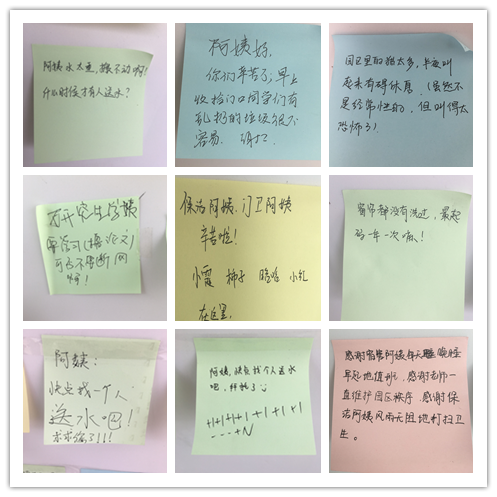 阿姨水太重,搬不动啊!
什么时候才有人送水?
阿姨好,
你们辛苦了,早上
收拾门口同学们有
乱扔的垃圾很不
容易.
园区里的猫太多,半夜叫
起来有碍休息.(虽然不
是经常性的,但叫得太
恐怖了)
研究生学姨
要学习(搞论文)
可否不断网
啊!
保洁阿姨,门卫阿姨
辛苦啦!
小雷 柿子 晓鸡 小礼
在这里
窗帘都没有洗过,最起
码一年一次嘛!
阿姨:
快点找一个人
送水吧!
求求你了!!!
阿姨,快点找个人送水
吧,拜托了
+1+1+1+1+1+1+1
----+N
感谢宿管阿姨每天晚睡
早起地值班,感谢老师一
直维护园区秩序,感谢保
洁阿姨风雨无阻地打扫卫
生。